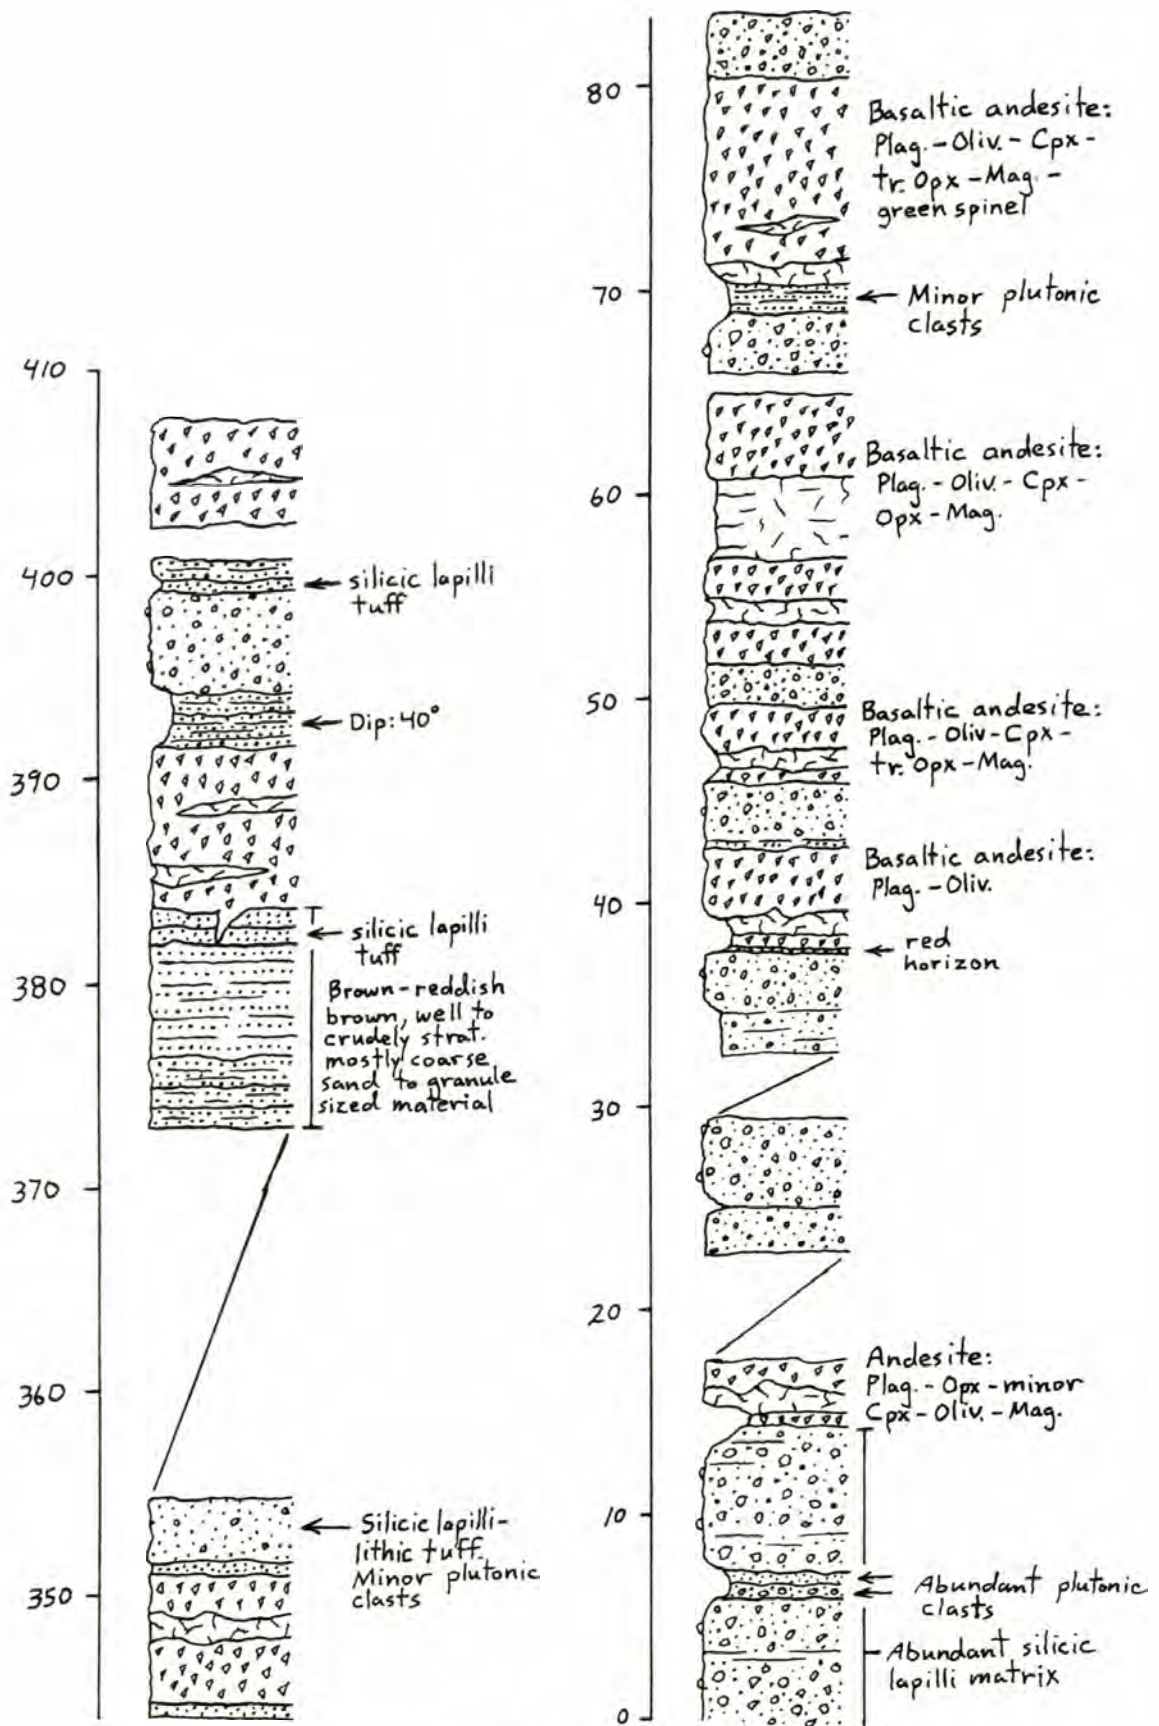 410
400
390
380
370
360
350
silicic lapilli
tuff
Dip: 40°
silicic lapilli
tuff
Brown-reddish
brown, well to
crudely strat.
mostly coarse
sand to granule
sized material
Silicic lapilli-
lithic tuff.
Minor plutonic
clasts
80
70
60
50
40
30
20
10
0
Basaltic andesite:
Plag. - Oliv. - Cpx -
tr. Opx - Mag. -
green spinel
Minor plutonic
clasts
Basaltic andesite:
Plag. - Oliv. - Cpx -
Opx - Mag.
Basaltic andesite:
Plag. - Oliv - Cpx -
tr. Opx - Mag.
Basaltic andesite:
Plag. - Oliv.
red
horizon
Andesite:
Plag. - Opx - minor
Cpx - Oliv. - Mag.
Abundant plutonic
clasts
Abundant silicic
lapilli matrix